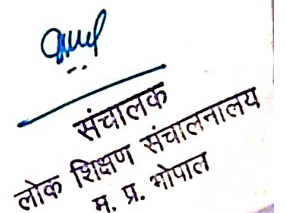 संचालक
लोक शिक्षण संचालनालय
म. प्र. भोपाल